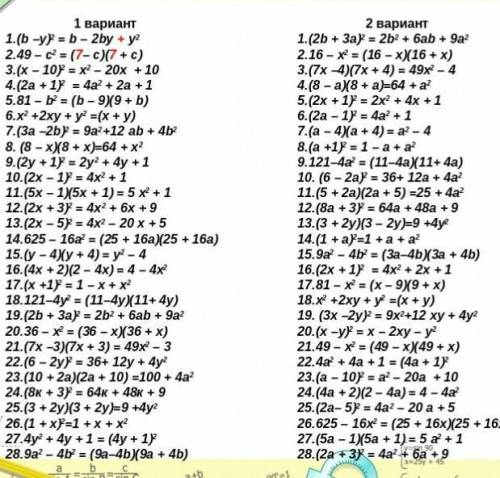 1 вариант
1.(b –y)² = b – 2by + y²
2.49 – c² = (7– c)(7 + c)
3.(x – 10)² = x² – 20x + 10
4.(2a + 1)² = 4a² + 2a + 1
5.81 – b² = (b – 9)(9 + b)
6.x² +2xy + y² =(x + y)
7.(3a –2b)² = 9a²+12 ab + 4b²
8. (8 – x)(8 + x)=64 + x²
9.(2y + 1)² = 2y² + 4y + 1
10.(2x – 1)² = 4x² + 1
11.(5x – 1)(5x + 1) = 5 x² + 1
12.(2x + 3)² = 4x² + 6x + 9
13.(2x – 5)² = 4x² – 20 x + 5
14.625 – 16a² = (25 + 16a)(25 + 16a)
15.(y – 4)(y + 4) = y² – 4
16.(4x + 2)(2 – 4x) = 4 – 4x²
17.(x +1)² = 1 – x + x²
18.121–4y² = (11–4y)(11+ 4y)
19.(2b + 3a)² = 2b² + 6ab + 9a²
20.36 – x² = (36 – x)(36 + x)
21.(7x –3)(7x + 3) = 49x² – 3
22.(6 – 2y)² = 36+ 12y + 4y²
23.(10 + 2a)(2a + 10) =100 + 4a²
24.(8к + 3)² = 64к + 48к + 9
25.(3 + 2y)(3 + 2y)=9 +4y²
26.(1 + x)²=1 + x + x²
27.4y² + 4y + 1 = (4y + 1)²
28.9a² – 4b² = (9a–4b)(9a + 4b)
2 вариант
1.(2b + 3a)² = 2b² + 6ab + 9a²
2.16 – x² = (16 – x)(16 + x)
3.(7x –4)(7x + 4) = 49x² – 4
4.(8 – a)(8 + a)=64 + a²
5.(2x + 1)² = 2x² + 4x + 1
6.(2a – 1)² = 4a² + 1
7.(a – 4)(a + 4) = a² – 4
8.(a +1)² = 1 – a + a²
9.121–4a² = (11–4a)(11+ 4a)
10. (6 – 2a)² = 36+ 12a + 4a²
11.(5 + 2a)(2a + 5) =25 + 4a²
12.(8a + 3)² = 64a + 48a + 9
13.(3 + 2y)(3 – 2y)=9 +4y²
14.(1 + a)²=1 + a + a²
15.9a² – 4b² = (3a–4b)(3a + 4b)
16.(2x + 1)² = 4x² + 2x + 1
17.81 – x² = (x – 9)(9 + x)
18.x² +2xy + y² =(x + y)
19. (3x –2y)² = 9x²+12 xy + 4y²
20.(x –y)² = x – 2xy – y²
21.49 – x² = (49 – x)(49 + x)
22.4a² + 4a + 1 = (4a + 1)²
23.(a – 10)² = a² – 20a + 10
24.(4a + 2)(2 – 4a) = 4 – 4a²
25.(2a– 5)² = 4a² – 20 a + 5
26.625 – 16x² = (25 + 16x)(25 + 16x
27.(5a – 1)(5a + 1) = 5 a² + 1
28.(2a + 3)² = 4a² + 6a + 9